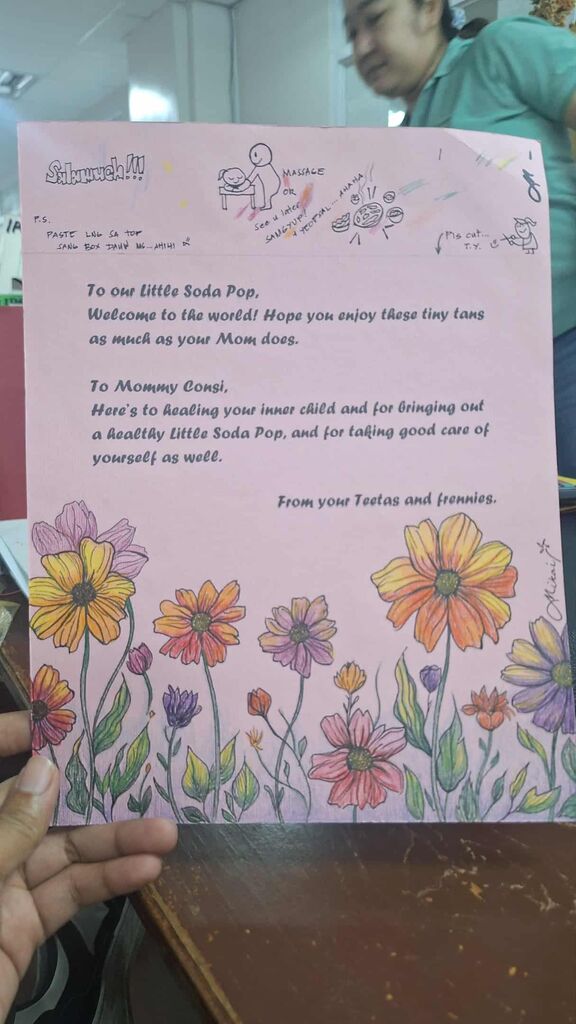 MASSAGE
OR
See u later
SAMGYUP!
YEOPSAL... AHAHA
P.S.
PASTE LNG SA TOP
SANG BOX DAUN MS...AHIHI
Pls cut...
T.Y.
To our Little Soda Pop,
Welcome to the world! Hope you enjoy these tiny tans
as much as your Mom does.
To Mommy Consi,
Here's to healing your inner child and for bringing out
a healthy Little Soda Pop, and for taking good care of
yourself as well.
From your Teetas and frennies.